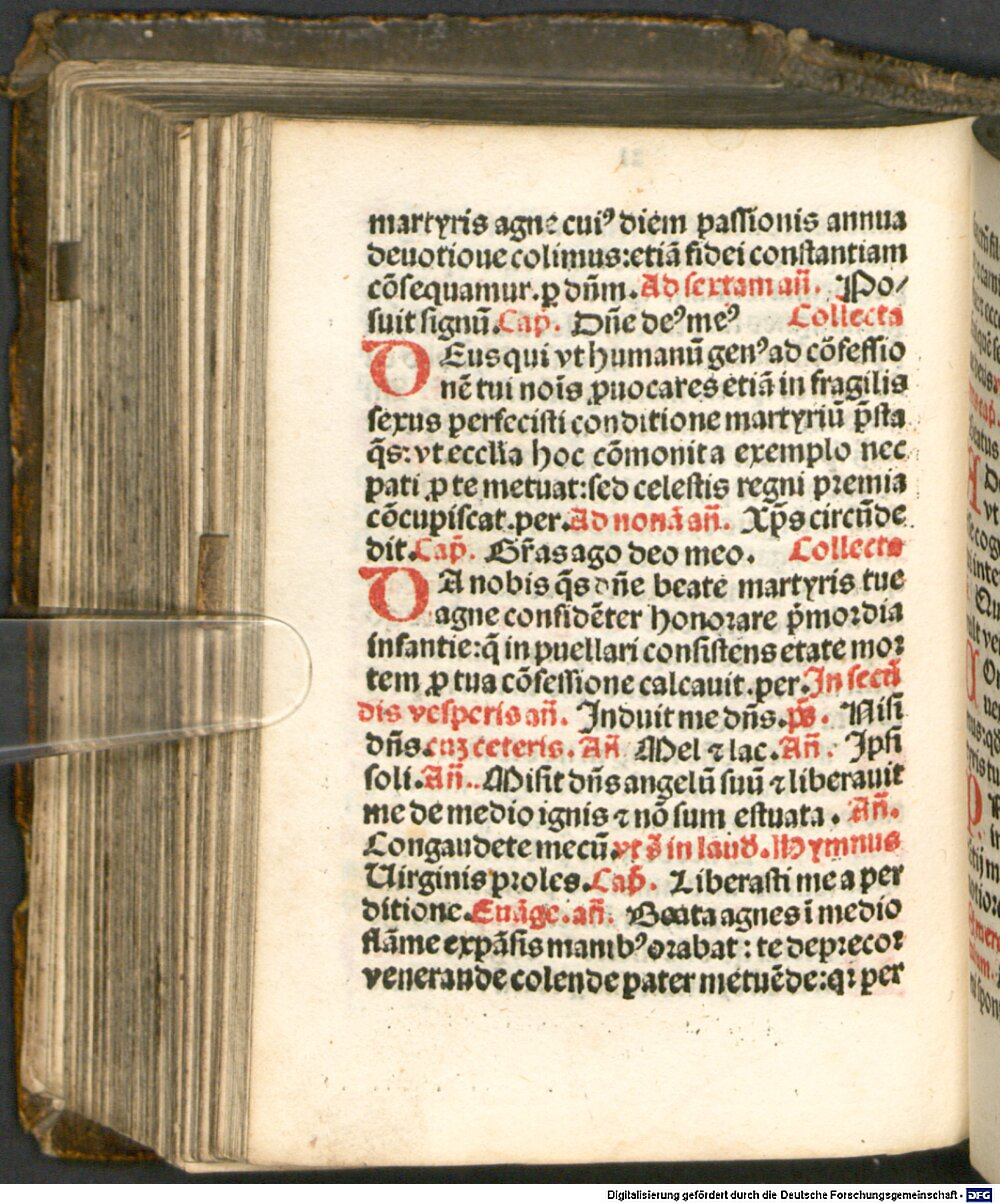 martyris agne cuiꝰ diem passionis annua
deuotioue colimus:etiā fidei constantiam
cōsequamur.ꝑ dn̄m.Ad sextam an̄. Po/
suit signū.Cap̄. Dn̄e deꝰ meꝰ Collecta
DEus qui vt humanū genꝰ ad cōfessio
nē tui nois̄ ꝓuocares etiā in fragilis
sexus perfecisti conditione martyriū p̄sta
q̄s:vt eccl̄ia hoc cōmonita exemplo nec
pati ꝓ te metuat:sed celestis regni premia
cōcupiscat.per.Ad nonā an̄. Xp̄s circūde
dit.Cap̄. Gr̄as ago deo meo. Collecta
DA nobis q̄s dn̄e beate martyris tue
agne confidēter honorare p̄mordia
infantie:q̄ in puellari consistens etate mor
tem ꝓ tua cōfessione calcauit.per.In secū
dis vesperis an̄. Induit me dn̄s.ps̄. Nisi
dn̄s.cuȝ ceteris. An̄ Mel ⁊ lac.An̄. Ipsi
soli.An̄..Misit dn̄s angelū suū ⁊ liberauit
me de medio ignis ⁊ nō sum estuata. An̄.
Congaudete mecū.vt s̄ in laud̄.Hymnus
Uirginis proles.Cap̄. Liberasti me a per
ditione.Euāge.an̄. Beata agnes ī medio
flāme expāsis manibꝰ orabat: te deprecor
venerande colende pater metuēde:qꝛ per
Digitalisierung gefördert durch die Deutsche Forschungsgemeinschaft - DFG